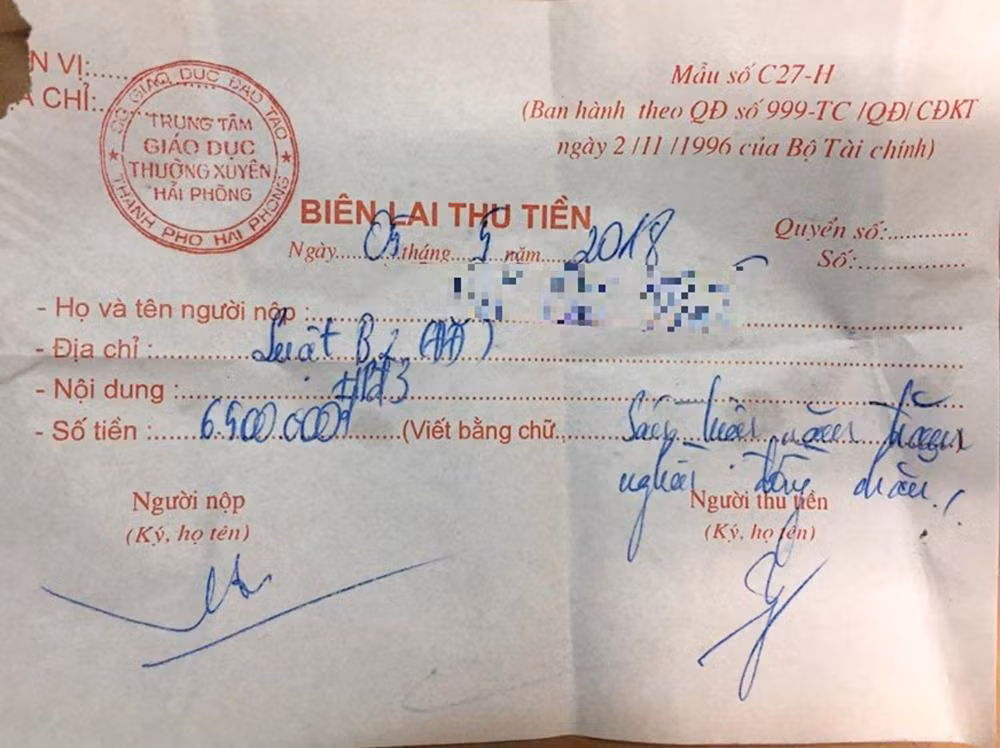 N VỊ:......
A CHỈ:...
SỞ GIÁO DỤC ĐÀO TẠO
TRUNG TÂM
GIÁO DỤC
THƯỜNG XUYÊN
HẢI PHÒNG
THÀNH PHỐ HẢI PHÒNG
Mẫu số C27-H
(Ban hành theo QĐ số 999-TC /QĐ/ CĐKT
ngày 2 /11 /1996 của Bộ Tài chính)
BIÊN LAI THU TIỀN
Ngày....05.tháng...5.năm....2018
Quyển số:............
Số:................
- Họ và tên người nộp :
- Địa chỉ : Luật B2
- Nội dung :
- Số tiền : 6.500.000đ (Viết bằng chữ. Sáu triệu năm trăm
nghìn đồng chẵn./
Người nộp
Người thu tiền
(Ký, họ tên)
(Ký, họ tên)